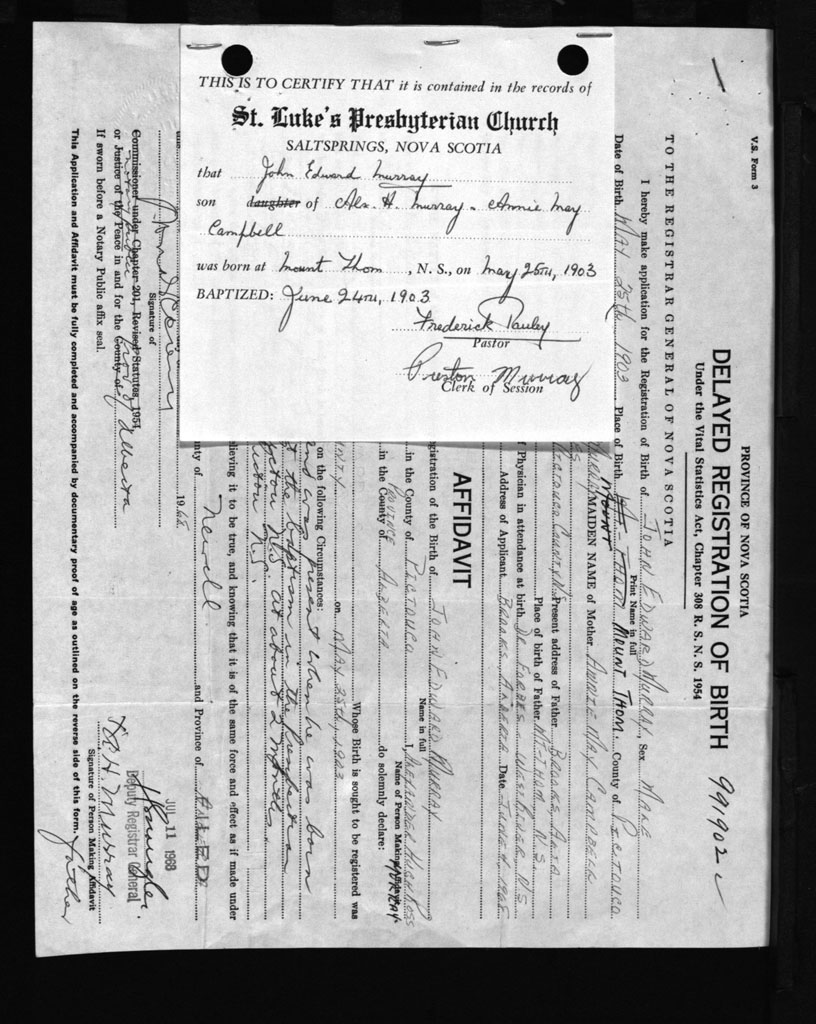 THIS IS TO CERTIFY THAT it is contained in the records of
St. Luke's Presbyterian Church
SALTSPRINGS, NOVA SCOTIA
that John Edward Murray
son daughter of Alx. H. Murray - Annie May
Campbell
was born at Mount Thom, N. S., on May 25TH, 1903
BAPTIZED: June 24TH, 1903
Frederick Pauley
Pastor
Preston Murray
Clerk of Session
V.S. Form 3
PROVINCE OF NOVA SCOTIA
DELAYED REGISTRATION OF BIRTH 99902
Under the Vital Statistics Act, Chapter 308 R. S. N. S. 1954
TO THE REGISTRAR GENERAL OF NOVA SCOTIA
I hereby make application for the Registration of Birth of JOHN EDWARD MURRAY Sex MALE
Print Name in full
Date of Birth MAY 25th 1903 Place of Birth THOM MOUNT THOM. County of PICTOUCO
MOUNT
MAIDEN NAME of Mother ANNIE MAY CAMPBELL
PICTOUCO COUNTY N.S. Present address of Father BROOKS, ALTA
Place of birth of Father MT-THOM, N.S.
f Physician in attendance at birth DR FORBES - WESTVILLE, N.S.
Address of Applicant BROOKS ALBERTA Date JUNE 4, 1968
AFFIDAVIT
gistration of the Birth of JOHN EDWARD MURRAY
Name in full
in the County of PICTOUCO I, ALEXANDER HUGH ROSS
Name of Person Making Affidavit
MURRAY
PROVINCE
in the County of ALBERTA do solemnly declare:
Whose Birth is sought to be registered was
on MAY 25th, 1903
on the following Circumstances:
and was present when he was born
at the baptism in the Presbyterian
N.S. at about 2 months
N.S.
elieving it to be true, and knowing that it is of the same force and effect as if made under
nty of Newell and Province of
1968
Signature of
Commissioner under Chapter 201, Revised Statutes, 1954
or Justice of the Peace in and for the County of Prov of Alberta
If sworn before a Notary Public affix seal.
A R H. Murray
Signature of Person Making Affidavit
father
JUL 11 1968
Deputy Registrar General
This Application and Affidavit must be fully completed and accompanied by documentary proof of age as outlined on the reverse side of this form.